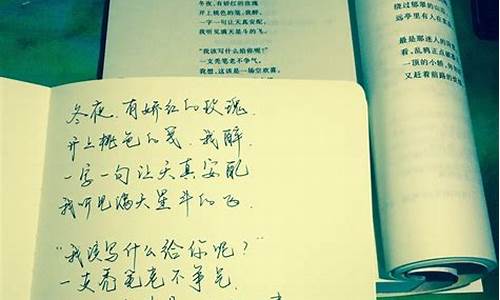 冬夜、有娇红的玫瑰
开上桃色的笺，我醉，
一字一句让天真安配
我听见满天星斗的飞
“我该写什么给你呢？”
一支秃笔老不争气
冬夜，有娇红的玫瑰
开上桃色的笺，我醉，
一字一句让天真安配，
我听见满天星斗的飞。
“我该写什么给你呢？”
一支秃笔老不争气，
我想，这该是一场空欢喜，
绕过郁翠的山
远亭里有人在
最是那迷人的
看，乱鸦正点
一顶的小轿，
又赶着前路的